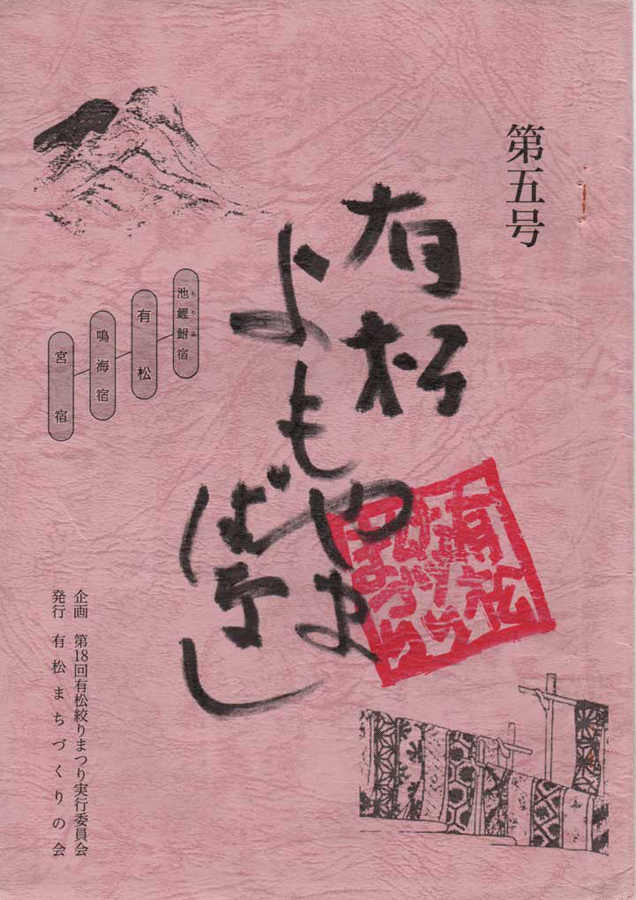 第五号
有松
よもやま
ばなし
池鯉鮒宿
有松
鳴海宿
宮宿
企画 第18回有松絞りまつり実行委員会
発行 有松まちづくりの会